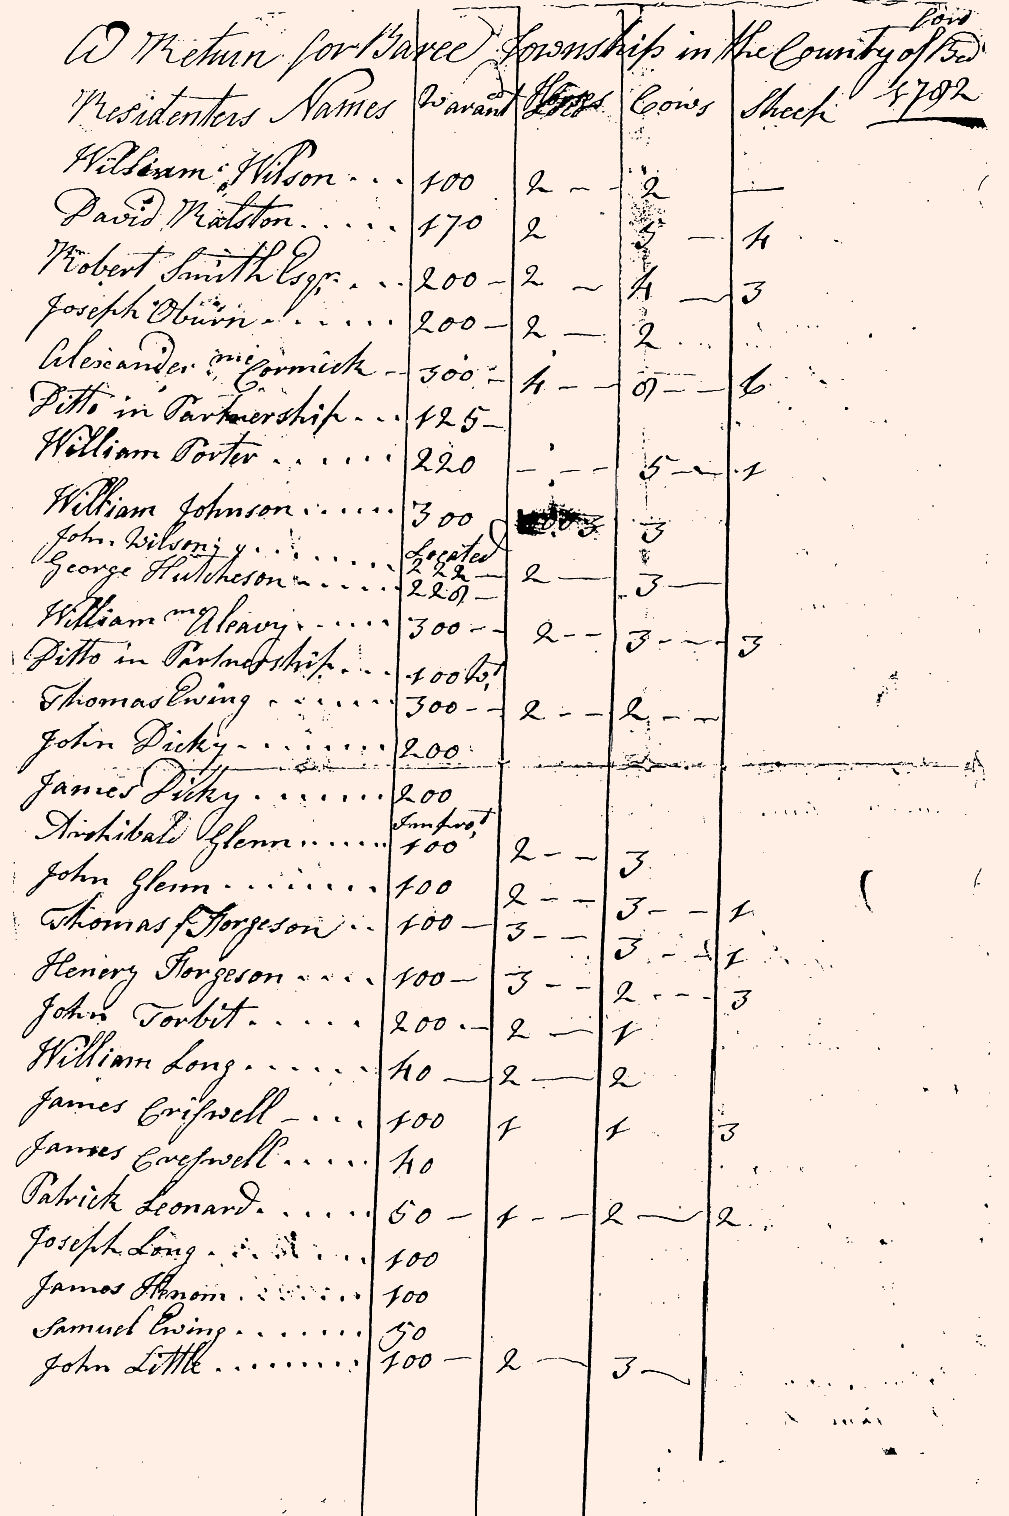 A Return for Baree Township in the County of Bedford
Residenters Names Warant Horses Cows Sheep 1782
William Wilson . . . 100 2 - - 2 —
David Ralston . . . . . 170 2 5 — 4
Robert Smith Esqr. . . . 200 - 2 — 4 — 3
Joseph Oburn . . . . . . 200 - 2 — 2
Alexander mcCormick - 300 - 4 - - 8 - - 6
Ditto in Partnership . . . 125 -
William Porter . . . . . . 220 - - - 5 - - 1
William Johnson . . . . . . 300 3 3
John Wilson . . . . . . Located 222 -
George Hutcheson . . . . . . 228 - 2 — 3 —
William mcAleavy . . . . . . 300 - - 2 - - 3 - - - 3
Ditto in Partnership . . . 100 Wt
Thomas Ewing . . . . . . 300 - - 2 - - 2 - -
John Dicky . . . . . . . 200
James Dicky . . . . . . . 200
Archibald Glenn . . . . . . Improvt 100 2 - - 3
John Glenn . . . . . . . 100 2 - - 3 - - 1
Thomas Forgeson . . 100 — 3 - - 3 - - 1
Henery Forgeson . . . . 100 - 3 - - 2 - - - 3
John Torbit . . . . . 200 - 2 — 1
William Long . . . . . . . 40 — 2 — 2
James Criswell - . . . 100 1 1 3
James Creswell . . . . . 40
Patrick Leonard . . . . . . 50 - 1 - - 2 — 2
Joseph Long . . . . . . . 100
James . . . . . . 100
Samuel Ewing . . . . . . . 50
John Little . . . . . . . . . 100 - 2 — 3 —